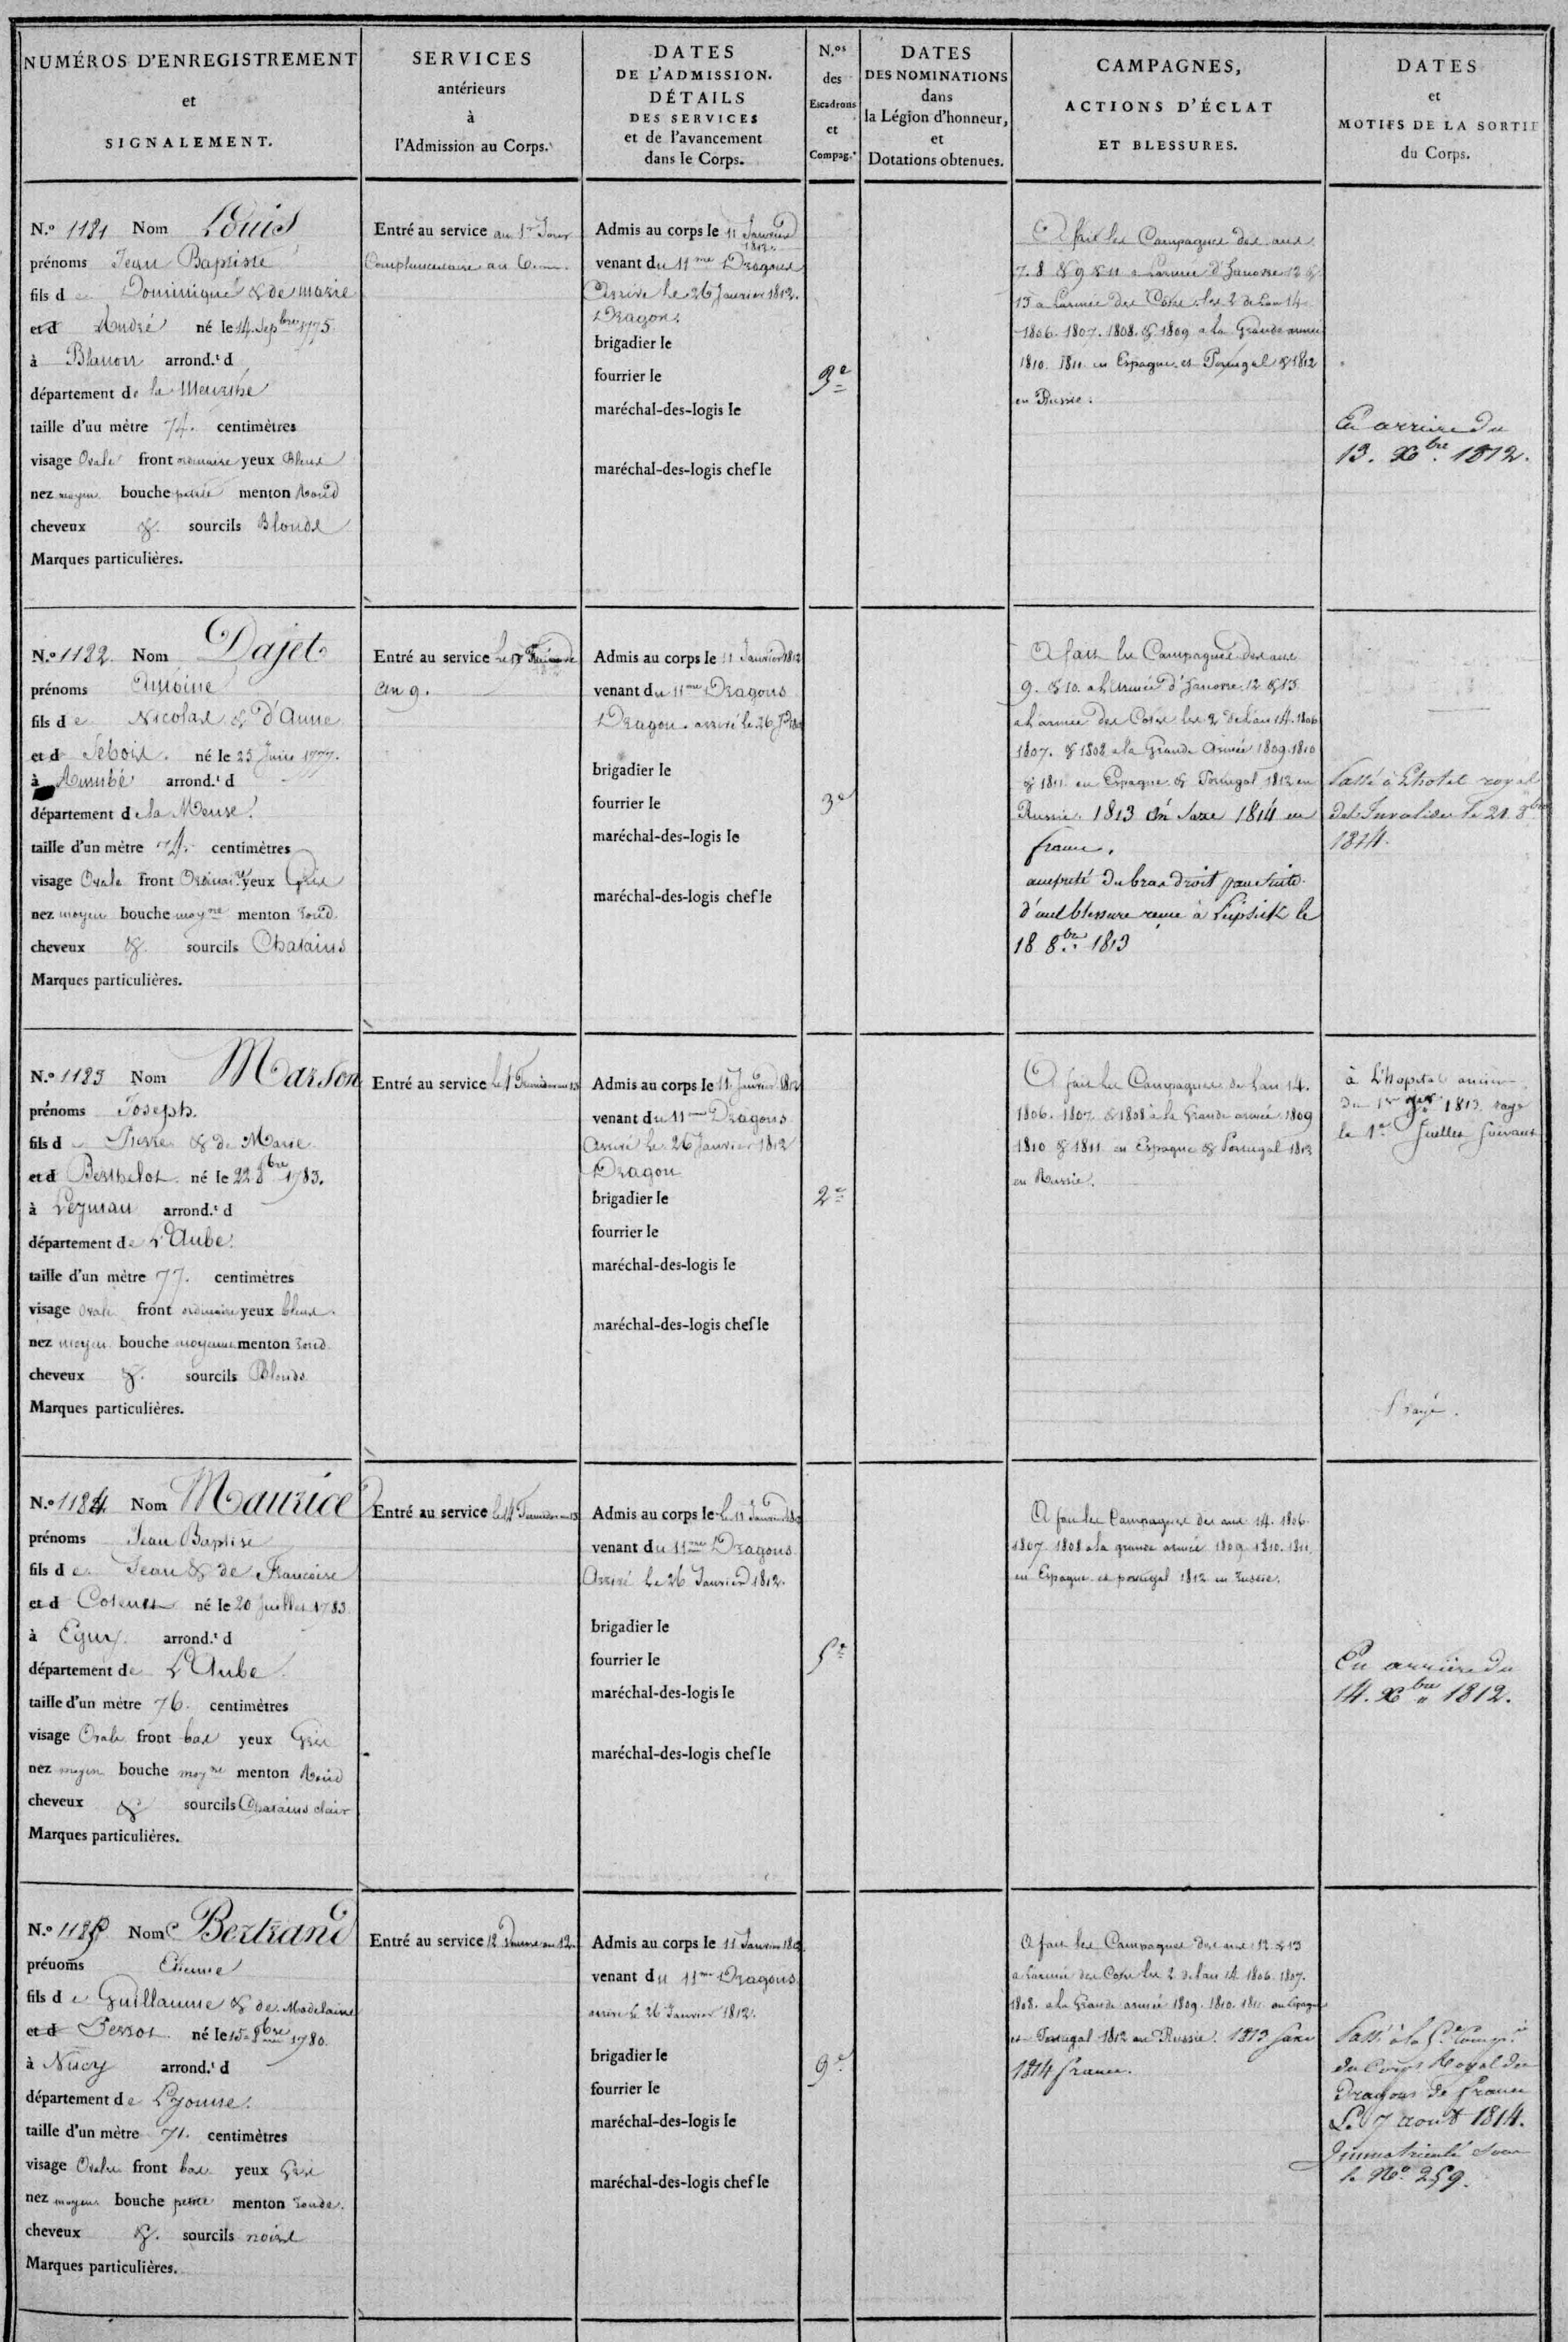 NUMÉROS D'ENREGISTREMENT
et
SIGNALEMENT.
SERVICES
antérieurs
à
l'Admission au Corps.
DATES
DE L'ADMISSION.
DÉTAILS
DES SERVICES
et de l'avancement
dans le Corps.
N.os
des
Escadrons
et
Compag.s
DATES
DES NOMINATIONS
dans
la Légion d'honneur,
et
Dotations obtenues.
CAMPAGNES,
ACTIONS D'ÉCLAT
ET BLESSURES.
DATES
et
MOTIFS DE LA SORTIE
du Corps.
N.o 1181 Nom Louis
prénoms Jean Baptiste
fils de Dominique & de marie
et d André né le 14. Sepbre 1775
à arrond.t d
département de la Meurthe
taille d'un mètre 74. centimètres
visage Ovale front ordinaire yeux Bleus
nez moyen bouche petite menton Rond
cheveux & sourcils Blonds
Marques particulières.
Entré au service au 1er Jour
Complementaire an 6
Admis au corps le 11 Janvier
1812.
venant du 11me Dragons
Arrivé le 26 Janvier 1812.
Dragon.
brigadier le
fourrier le
maréchal-des-logis le
maréchal-des-logis chef le
3e
A fait les Campagnes des ans
7. 8 & 9 & 11 a L'armée d'Hanovre 12 &
13 a L'armée des Cotes. les 2 de L'an 14
1806. 1807. 1808. & 1809 a la Grande armée
1810. 1811. en Espagne et Portugal & 1812
en Russie.
En arrière du
13. Xbre 1812.
N.o 1182. Nom Dajet
prénoms Antoine
fils de Nicolas & d'Anne
et d Sebois. né le 25 Juin 1777.
à arrond.t d
département de la Meuse.
taille d'un mètre 74. centimètres
visage Ovale front Ordinaire yeux Gris
nez moyen bouche moyne menton rond
cheveux & sourcils Chatains
Marques particulières.
Entré au service le Frimaire
an 9.
Admis au corps le 11 Janvier 1812
venant du 11me Dragons
Dragon. arrivé le 26
brigadier le
fourrier le
maréchal-des-logis le
maréchal-des-logis chef le
3e
A fait les Campagnes des ans
9. & 10. a L'armée d'Hanovre. 12 & 13
a L'armée des Cotes les 2 de L'an 14. 1806
1807. & 1808 a la Grande Armée 1809. 1810
& 1811. en Espagne & Portugal 1812 en
Russie. 1813 en Saxe 1814 en
france.
amputé du bras droit par suite
d'une blessure reçue à Leipsick le
18 8bre 1813
Passé à L'hotel royal
des Invalides le 21. 8bre
1814.
N.o 1183 Nom Marson
prénoms Joseph.
fils de Pierre & de Marie
et d Berthelot né le 22 8bre 1783.
à arrond.t d
département de L'Aube.
taille d'un mètre 77. centimètres
visage Ovale front ordinaire yeux bleus.
nez moyen bouche moyenne menton rond
cheveux & sourcils Blonds
Marques particulières.
Entré au service le an 13
Admis au corps le 11. Janvier 1812
venant du 11me Dragons
Arrivé le 26 Janvier 1812
Dragon
brigadier le
fourrier le
maréchal-des-logis le
maréchal-des-logis chef le
2e
A fait les Campagnes de L'an 14.
1806. 1807 & 1808 à la Grande armée 1809
1810 & 1811 en Espagne & Portugal 1812
en Russie.
à L'hopital
du 1er 1813 rayé
le 1er Juillet suivant
rayé.
N.o 1184 Nom Maurice
prénoms Jean Baptiste
fils de Jean & de Francoise
et d né le 20 Juillet 1783
à arrond.t d
département de L'Aube
taille d'un mètre 76. centimètres
visage Ovale front bas yeux Gris
nez moyen bouche moyne menton Rond
cheveux & sourcils Chatains clair
Marques particulières.
Entré au service le an 13
Admis au corps le le 11 Janvier
venant du 11me Dragons
Arrivé le 26 Janvier 1812.
brigadier le
fourrier le
maréchal-des-logis le
maréchal-des-logis chef le
5e
A fait les Campagnes des ans 14. 1806.
1807 1808 a la grande armée 1809 1810. 1811.
en Espagne et portugal 1812 en russie.
En arrière du
14. Xbre 1812.
N.o 1185 Nom Bertrand
prénoms Etienne
fils de Guillaume & de Madelaine
et d Perrot né le 15 1780.
à arrond.t d
département de L'yonne.
taille d'un mètre 71. centimètres
visage Ovale front bas yeux Gris
nez moyen bouche petite menton ronde.
cheveux & sourcils noirs
Marques particulières.
Entré au service 12 an 12.
Admis au corps le 11 Janvier 1812
venant du 11me Dragons
arrivé le 26 Janvier 1812.
brigadier le
fourrier le
maréchal-des-logis le
maréchal-des-logis chef le
9e
A fait les Campagnes des ans 12 & 13
a L'armée des Cotes les 2 de L'an 14 1806. 1807.
1808. a la Grande armée 1809. 1810. 1811. en Espagne
et Portugal 1812 en Russie. 1813 Saxe
1814 france.
Passé à la 5e Compie
du Corps Royal des
Dragons de france
Le 7 août 1814.
Immatriculé sous
le No 259.